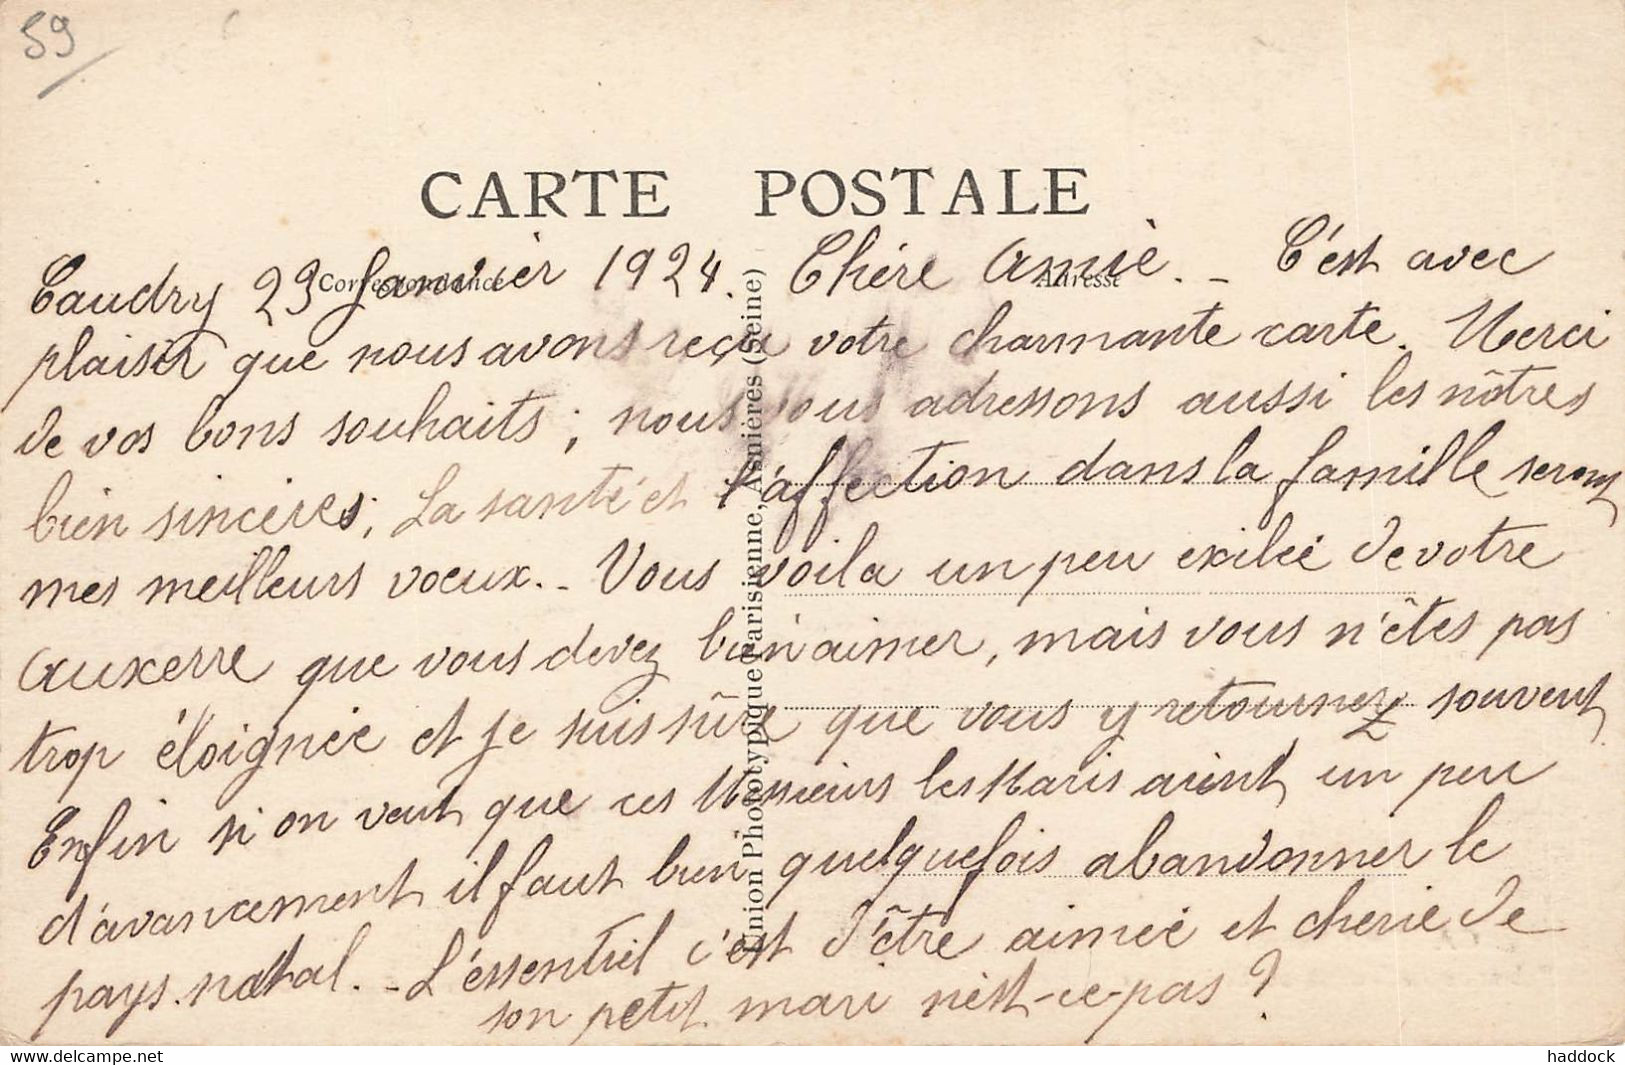 59
CARTE POSTALE
Correspondance
Adresse
Caudry 23 Janvièr 1924. Chére Amiè. - C'est avec
plaisir que nous avons reçu votre charmante carte. Merci
de vos bons souhaits ; nous vous adressons aussi les nôtres
bien sincères; La santé et l'affection dans la famille seront
mes meilleurs voeux. - Vous voila un peu exilée de votre
Auxerre que vous devez bien aimer, mais vous n'êtes pas
trop éloignée et je suis sûre que vous y retournez souvent
Enfin si on veut que ces Messieurs les Maris aient un peu
d'avancement il faut bien quelquefois abandonner le
pays natal. - L'éssentiel c'est d'être aimée et cherie de
son petit mari n'est-ce-pas ?
Union Phototypique Parisienne, Asnières (Seine)
www.delcampe.net
haddock